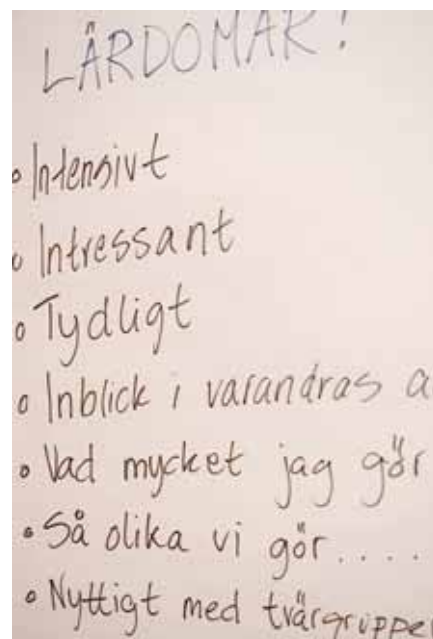 LÄRDOMAR!
• Intensivt
• Intressant
• Tydligt
• Inblick i varandras a
• Vad mycket jag gör
• Så olika vi gör....
• Nyttigt med tvärgrupper